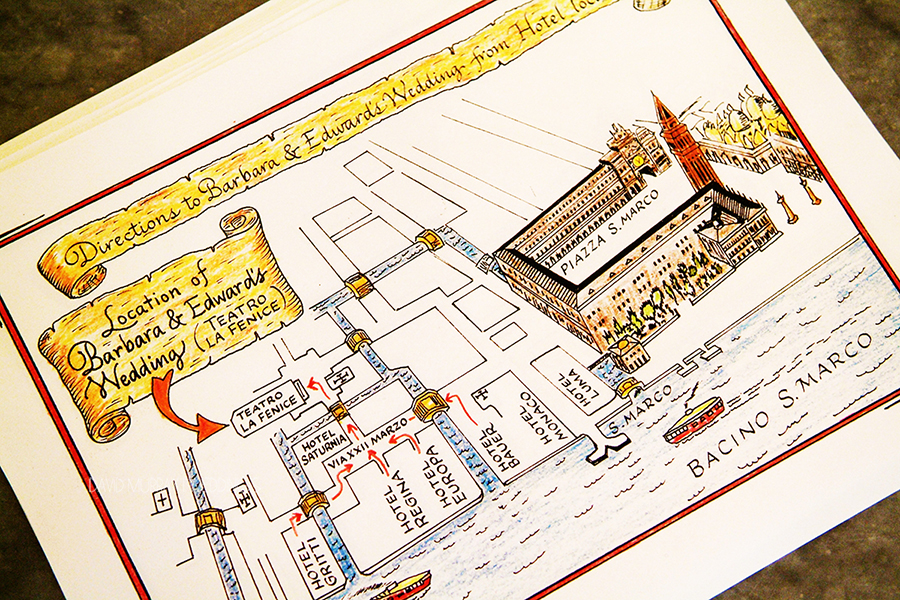 Directions to Barbara & Edward's Wedding from Hotel
Location of
Barbara & Edward's
Wedding (TEATRO
LA FENICE
PIAZZA S.MARCO
TEATRO
LA FENICE
HOTEL
SATURNIA
VIA XXII MARZO
HOTEL
GRITTI
HOTEL
REGINA
HOTEL
EUROPA
HOTEL
BAUER
HOTEL
MONACO
HOTEL
LUNA
S.MARCO
BACINO S.MARCO